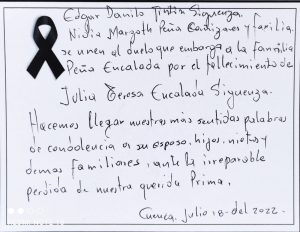 Edgar Danilo Tintin Siguenza.
Nidia Margoth Peña Cañizares y familia.
se unen al duelo que embarga a la familia
Peña Encalada por el fallecimiento de
Julia Teresa Encalada Siguenza.
Hacemos llegar nuestras más sentidas palabras
de condolencia a su esposo, hijos, nietos y
demas familiares, ante la irreparable
perdida de nuestra querida Prima.
Cuenca, Julio 18 - del 2022.